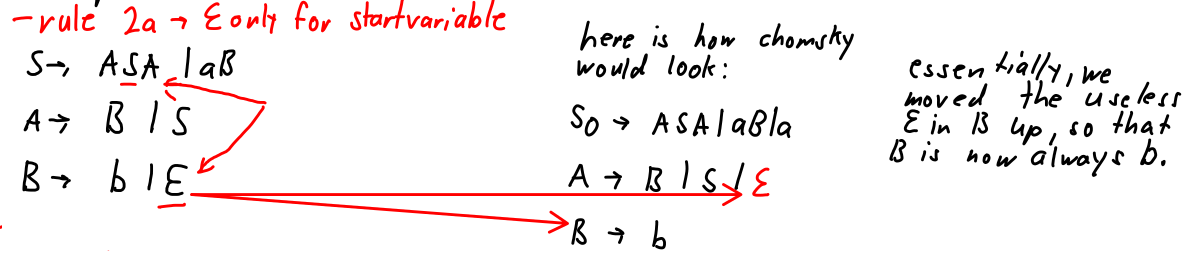 -rule 2a → ε only for startvariable
S → ASA | aB
A → B | S
B → b | ε
here is how chomsky
would look:
S0 → ASA | aB | a
A → B | S | ε
B → b
essentially, we
moved the useless
ε in B up, so that
B is now always b.